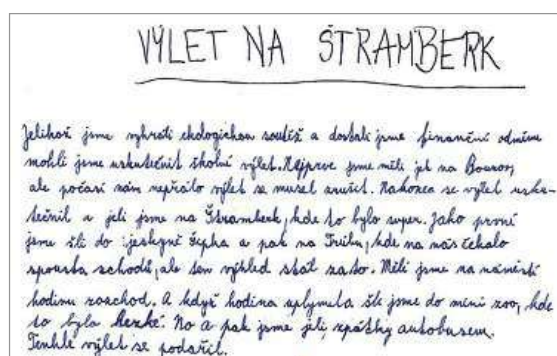 VÝLET NA ŠTRAMBERK
Jelikož jsme vyhráli ekologickou soutěž a dostali jsme finanční odměnu
mohli jsme uskutečnit školní výlet. Nejprve jsme měli jet na Bouzov,
ale počasí nám nepřálo výlet se musel zrušit. Nakonec se výlet usku-
tečnil a jeli jsme na Štramberk, kde to bylo super. Jako první
jsme šli do jeskyně Šipka a pak na Trúbu, kde na nás čekalo
spousta schodů, ale ten výhled stál zato. Měli jsme na náměstí
hodinu rozchod. A když hodina uplynula šli jsme do mini zoo, kde
to bylo hezké. No a pak jsme jeli zpátky autobusem.
Tenhle výlet se podařil.